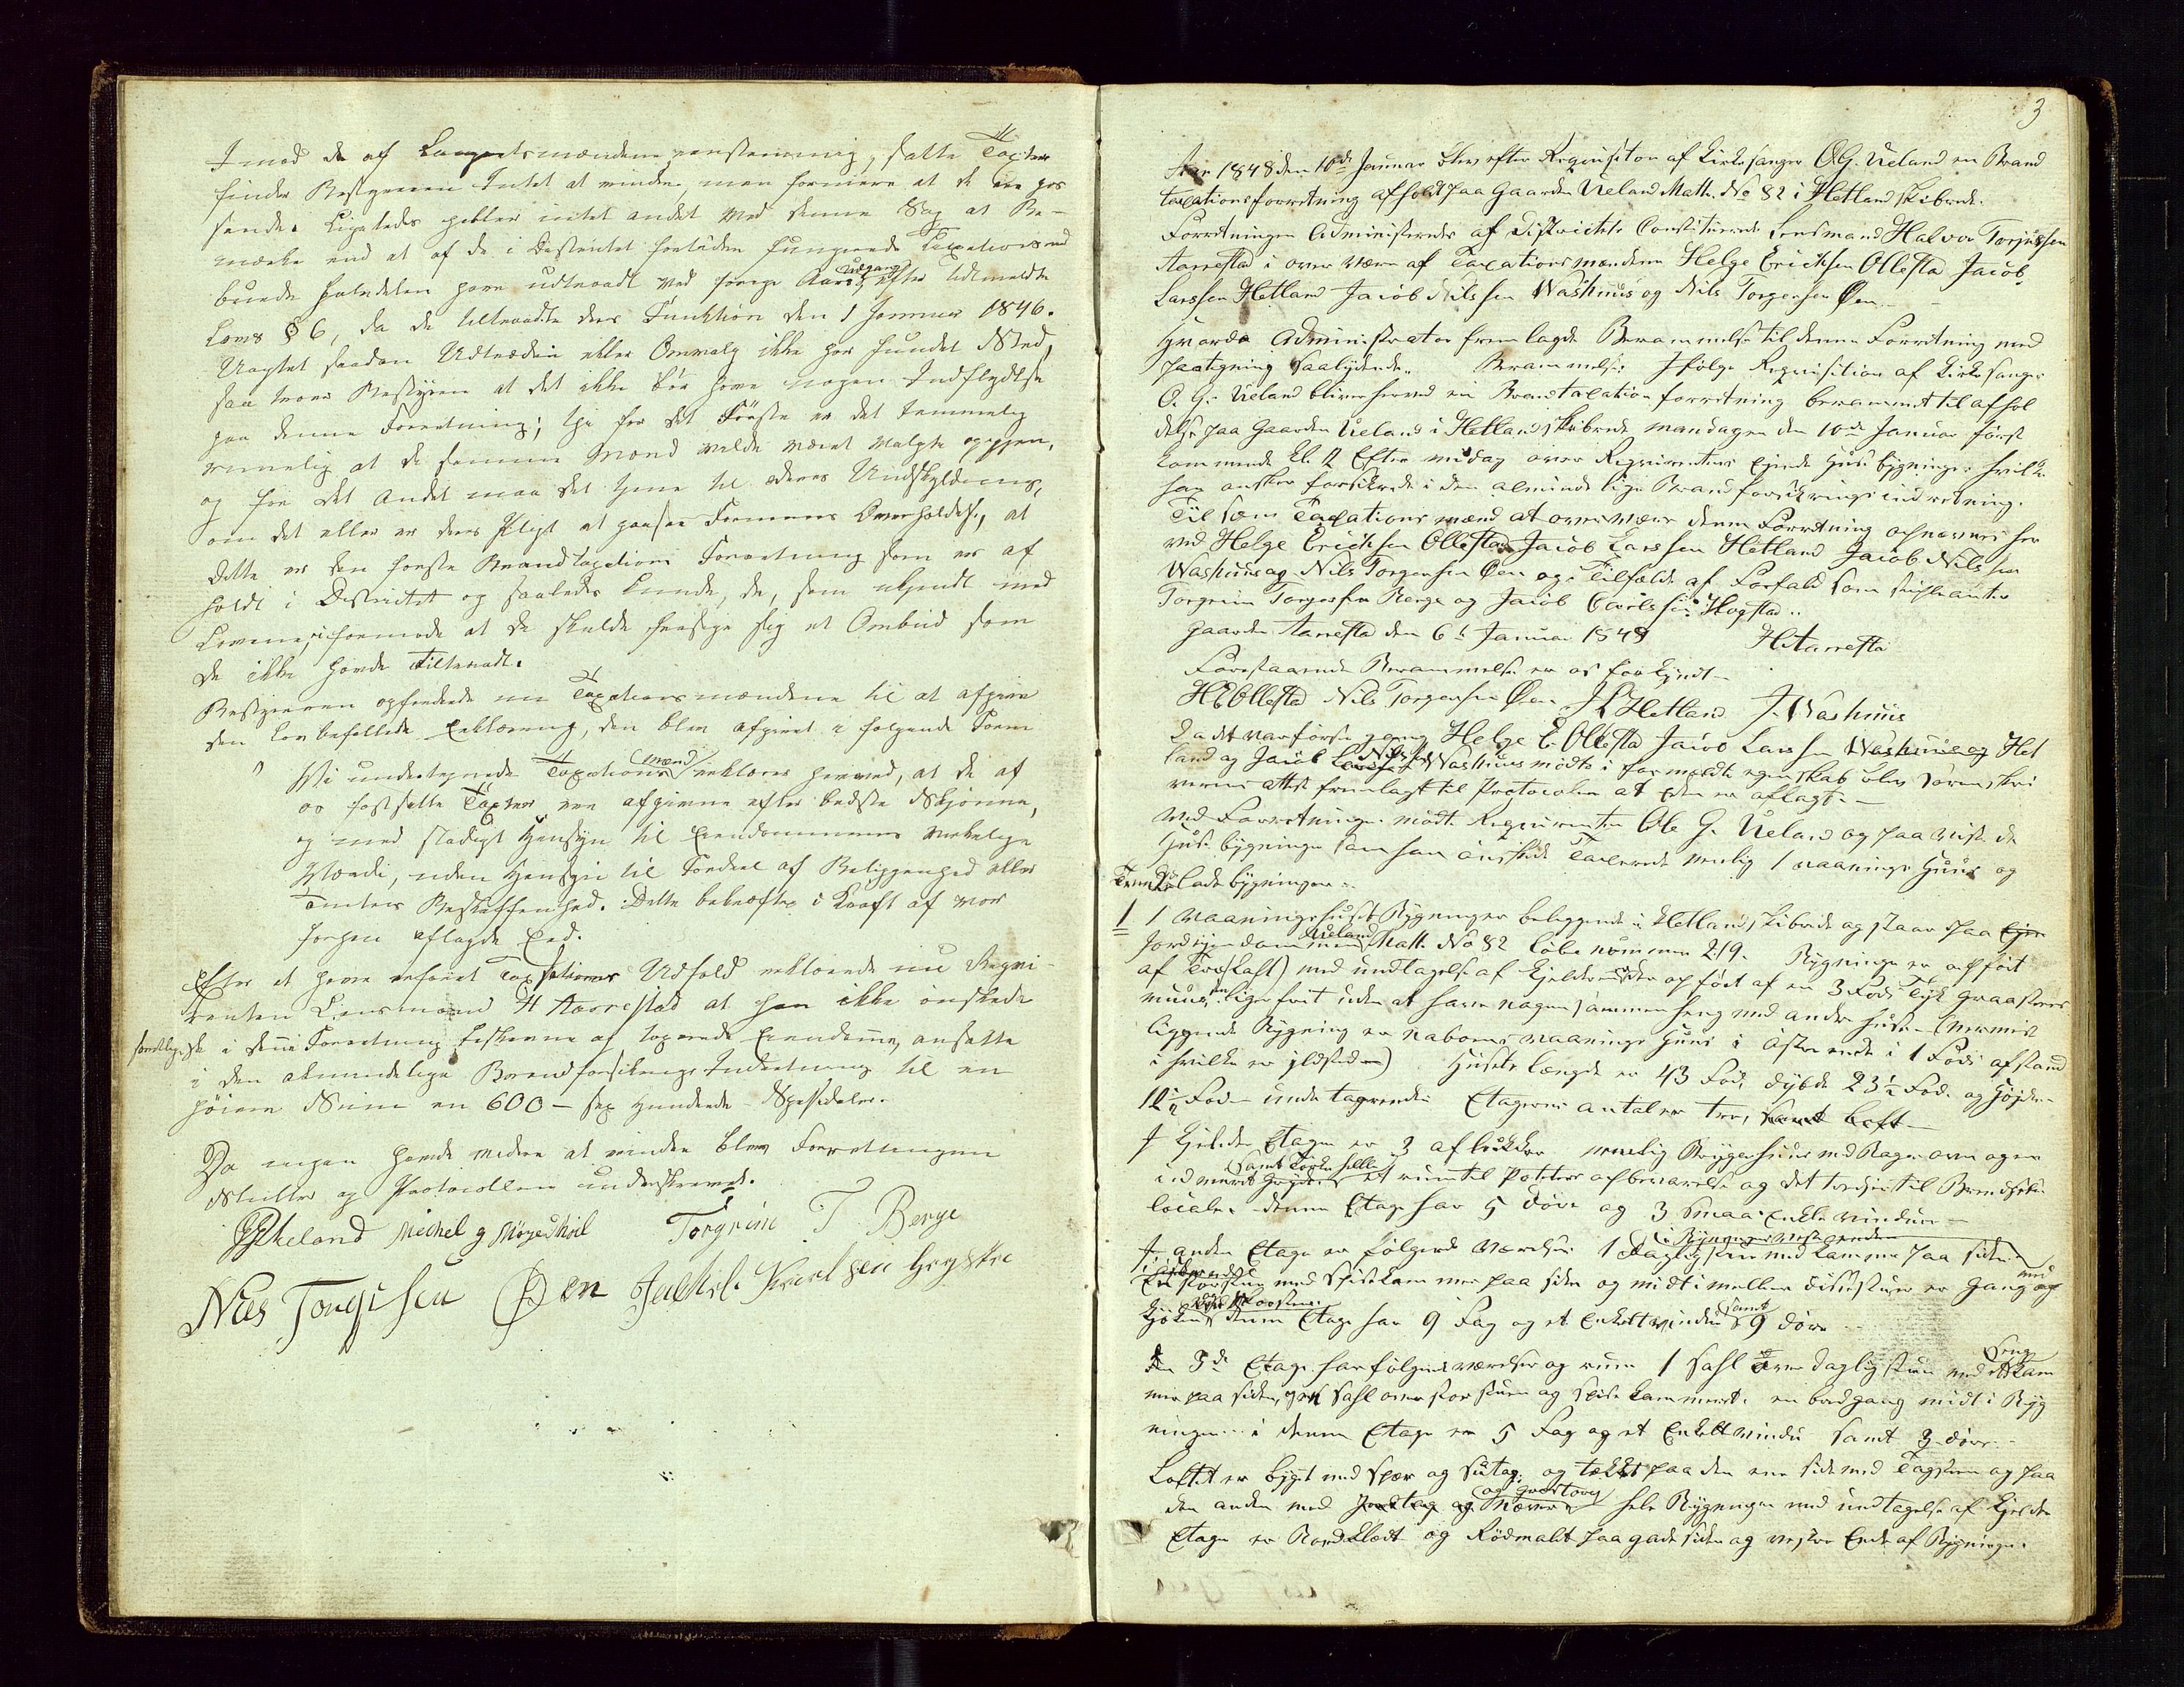 Imod de af Laugretsmændene ansatte Taxter
finder Bestyreren Intet at erindre, men formener at de ere pas
sende. Ligeledes heller intet andet ved denne Sag at Be-
mærke end at af de i Districtet fortiden fungerende Taxationsmænd
burde halvdelen have udtraadt ved forrige Aars udgang efter
Lovs § 6, da de tiltraadte deres Funktion den 1 Januar 1846.
Uagtet saadan Udtrædelse eller Omvalg ikke har fundet Sted,
saa troer Bestyreren at det ikke bør have nogen Indflydelse
paa denne Forretning; thi for det Første er det temmelig
rimelig at de samme Mænd vilde været valgte opigjen,
og for det Andet maa det tjene til deres Undskyldning,
om det eller er deres Pligt at paasee Formens Overholdelse, at
dette er den første Brandtaxations Forretning som er af
holdt i Districtet og saaledes kunde de, som ukjendt med
Lovene, ei formode at de skulde frasige sig et Ombud som
de ikke havde tiltraadt.
Bestyreren opfordrede nu Taxationsmændene til at afgive
den lovbefallede Erklæring, den blev afgivet i følgende Form
" Vi undertegnede Taxationsmænd erklærer herved, at de af
os fastsatte Taxter ere afgivne efter bedste Skjønne,
og med stadigt Hensyn til Eiendommenes virkelige
Værdi, uden Hensyn til Fordeel af Beliggenhed eller
Tomtens Beskaffenhed. Dette bekræftes i Kraft af vor
forhen aflagde Eed.
Efter at have erfaret Taxationens Udfald erklærede nu Reqvi-
renten Lensmand H Aarrestad at han ikke ønskede
samtlige de i denne Forretning beskrevne og taxerede Eiendomme, ansatte
i den almindelige Brandforsikrings Indretning til en
høiere Sum en 600 - sex Hundrede - Speciedaler.
Da ingen havde videre at erindre blev Forretningen
Sluttet og Protocollen underskrevet.
Michel G Mörgedthøil Torgrim T. Berge
Niels Torgisen Øen Karlsen
3
Aar 1848 den 10de Januar blev efter Requisition af Kirkesanger O. G. Ueland en Brand
taxationsforretning afholdt paa Gaarden Ueland Matk. No 82 i Hetland skibrede.
Forretningen Administreredes af Districtets Constituerede Lensmand Halvor Torjussen
Aarrestad i overvær af Taxationsmændene Helge Erichsen Ollestad Jacob
Larssen Hetland Jacob Nilssen Washuus og Nils Torgersen Øen
Hvorda Administrator fremlagde Berammelse til denne Forretning med
paategning saalydende. Berammelse Ifølge Requisition af Kirkesanger
O. G. Ueland bliver herved en Brandtaxation forretning berammet til afhol
delse paa Gaarden Ueland i Hetland skibrede mandagen den 10de Januar først
kommende kl. 2 Efter middag over Requirentens Ejende Huusbygninger hvilke
han ønsker forsikrede i den almindelige Brandforsikrings indretning.
Til som Taxationsmænd at overvære denne Forretning opnævnes her
ved Helge Erichsen Ollestad Jacob Larssen Hetland Jacob Nilssen
Washuus og Nils Torgersen Øen og i Tilfælde af Forfald som suppleanter
Torgrim Torgersen Berge og Jacob Carlssen Hogstad.
Gaarden Aarrestad den 6te Januar 1848 H Aarrestad
Forestaaende Berammelse er os forkyndt
H E Ollestad Nils Torgersen Øen J L Hetland J. Washuus
Da det var første gang Helge E. Ollestad Jacob Larssen Het
land og Jacob Nilssen Washuus mødte i formeldte egenskab blev Sorenskri
verens attest fremlagt til Protocolen at Eden er aflagt.
Ved Forretningen mødte Requirenten Ole G. Ueland og paaviste de
Huusbygninger som han ønskede Taxerede nemlig 1 vaanings Huus og
Tvende Ladebygninger.
1 1 Vaaningshuusets Bygninger beliggende i Hetland skibrede og staar paa
Jordejendommen Ueland Matk. No 82 løbenummer 219. Bygningen er opført
af Tre (Laft) med undtagelse af Kjelderen der opført af en 3 Fods Tyk graasteens
muur, ligger frit uden at have nogen sammenheng med andre huse. (nermest
liggende Bygning er naboens vaanings Huus i østre ende i 1 Fods afstand
i hvilke er ildsteder) Husets længde er 43 Fod, dybde 23½ Fod. og Højde
12½ Fod - under tagrende. Etagernes antal er tre, samt Loft.
I Kjelder Etagen er 3 aflukker nemlig Bryggerhuus med Bagerovn og en
indmuret Gryde samt Torkehelle et rum til Poteters opbevarelse og det tredje til Brendsels
locale. denne Etage har 5 døre og 3 smaa enkelte vinduer
I anden Etage er følgende Værelser: 1 Dagligstue med Kammer paa siden i Bygningens vestre ende
En Storstue med Spisekammer paa siden og midt imellem disse stuer er Gang med
Kjøken med Skorsteen. denne Etage har 9 Fag og et enkelt vindue samt 9 døre
den 3de Etage har følgende værelser og rum 1 Sahl over dagligstuen med et Seng Kam
mer paa siden, 1 Sahl over storstuen og spisekammeret. en bredgang midt i Byg
ningen. i denne Etage er 5 Fag og et Enkelt vindue samt 3 døre.
Loftet er bygt med Sper og sutag, og tækket paa den ene side med Tagsteen og paa
den anden med Næver og græstorv hele Bygningen med undtagelse af Kjelder
Etagen er Bordklædt og Rødmalet paa gadesiden og vestre Ende af Bygningen.